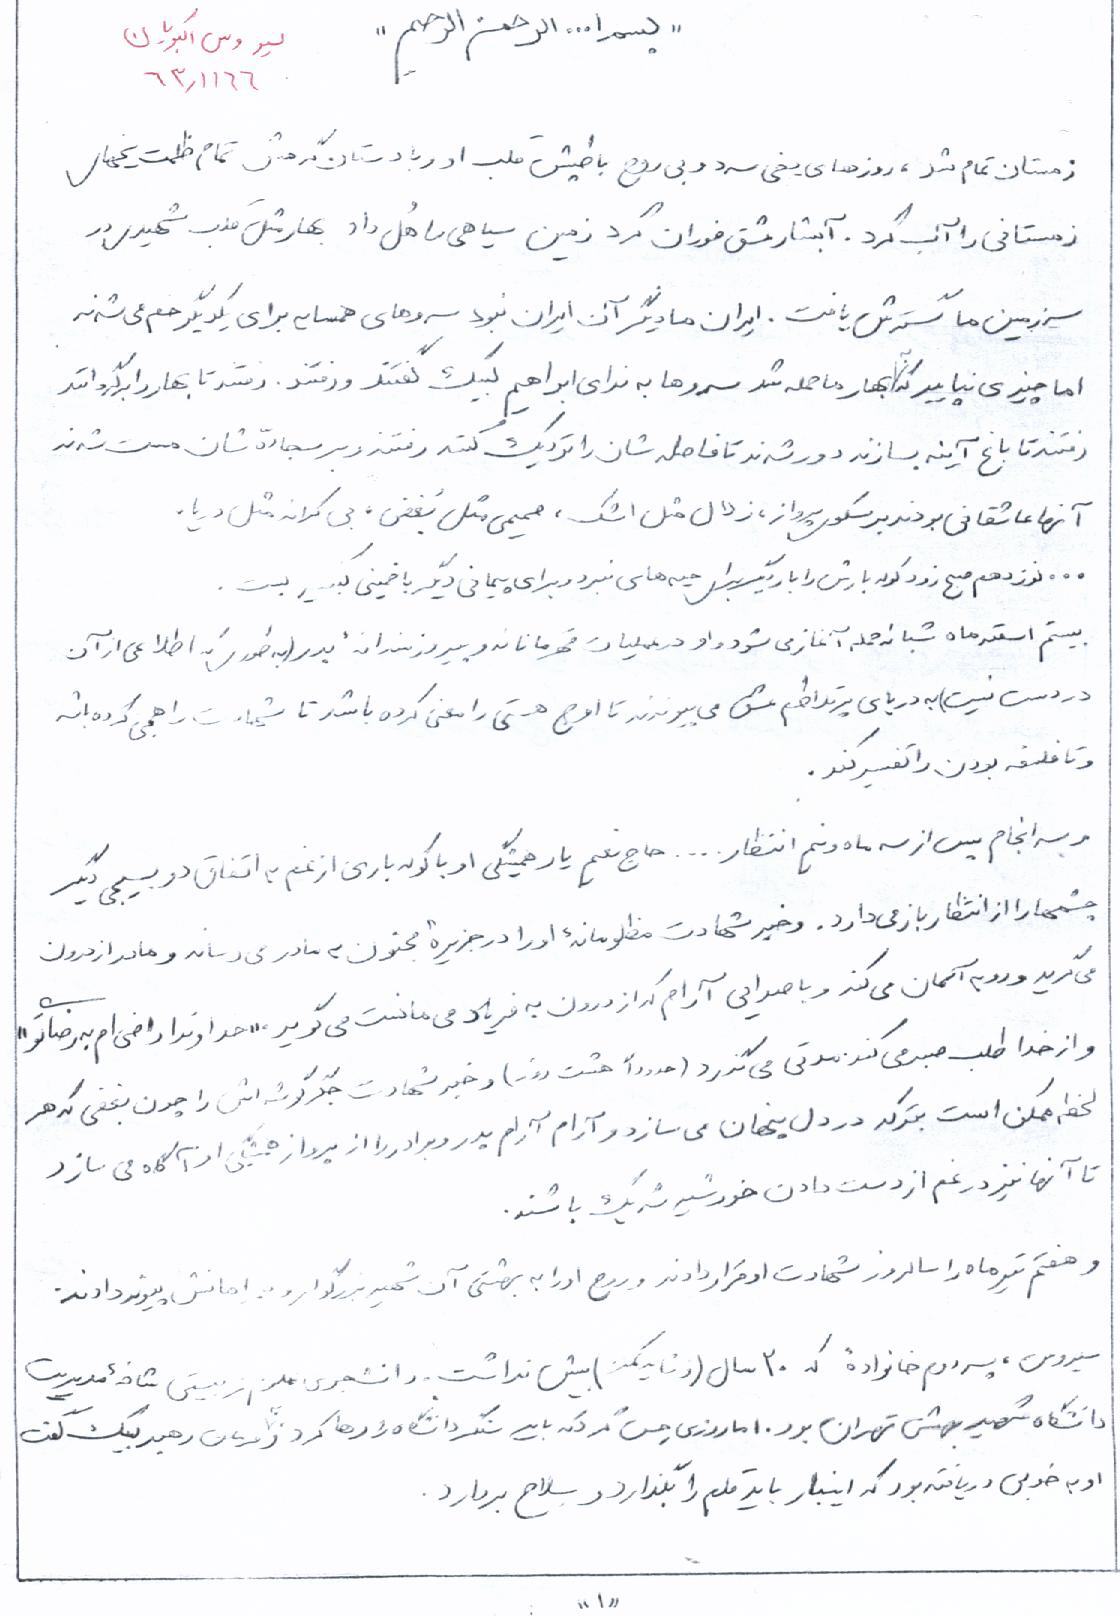 "بسم ا... الرحمن الرحیم"
سیروس اکبریان
۶۳/۱۱۶۶
زمستان تمام شد، روزهای یخی سرد و بی روح با طپش قلب او و با دستان گرمش تمام ظلمت یخهای
زمستانی را آب کرد. آبشار عشق فوران کرد زمین سیاهی را هُل داد بهار مثل قلب شهیدی در
سرزمین ما گسترش یافت. ایران ما دیگر آن ایران نبود سروهای همسایه برای یکدیگر خم می شدند
اما چیزی نپایید که به بهار ما حمله شد سروها به ندای ابراهیم لبیک گفتند و رفتند. رفتند تا بهار را برگردانند
رفتند تا باغ آینه بسازند دور شدند تا فاصله شان را نزدیک کنند رفتند و بر سجادۀ شان مست شدند
آنها عاشقانی بودند بر سکوی پرواز، زلال مثل اشک، صمیمی مثل بُغض، بی کرانه مثل دریا.
... نوزدهم صبح زود کوله بارش را بار دیگر برای جبهه های نبرد و برای پیمانی دیگر با خمینی کبیر بست.
بیستم اسفند ماه شبانه حمله آغاز می شود و او در عملیات قهرمانانه و پیروزمندانۀ بدر (به طوری که اطلاعی از آن
در دست نیست) به دریای پرتلاطم عشق می پیوندند تا اوج هستی را معنی کرده باشد تا شهادت را هجی کرده باشد
و تا فلسفه بودن را تفسیر کند.
و سرانجام پس از سه ماه و نیم انتظار .... حاج نعیم یار همیشگی او با کوله باری از غم به اتفاق دو بسیجی دیگر
چشمها را از انتظار باز می دارد. و خبر شهادت مظلومانۀ او را در جزیرۀ مجنون به مادر می رساند و مادر از درون
می گرید و رو به آسمان می کند و با صدایی آرام که از درون به فریاد می مانست می گوید. "خداوندا راضی ام به رضای تو"
و از خدا طلب صبر می کند. مدتی می گذرد (حدوداً هشت روز) و خبر شهادت جگرگوشه اش را چون بغضی که هر
لحظه ممکن است بترکد در دل پنهان می سازد و آرام آرام پدر و برادر را از پرواز همیشگی او آگاه می سازد
تا آنها نیز در غم از دست دادن خورشید شریک باشند.
و هفتم تیرماه را سالروز شهادت او قرار دادند و روح او را به بهشتی آن شهید بزرگوار و یارانش پیوند دادند.
سیروس، پسر دوم خانوادۀ که ۲۰ سال (و شاید کمتر) بیش نداشت. دانشجوی علوم زیستی شاخۀ مدیریت
دانشگاه شهید بهشتی تهران بود. اما روزی حس کرد که باید سنگر دانشگاه را رها کرد و به فرمان رهبر لبیک گفت
او به خوبی دریافته بود که اینبار باید قلم را بگذارد و سلاح بردارد.
"۱"